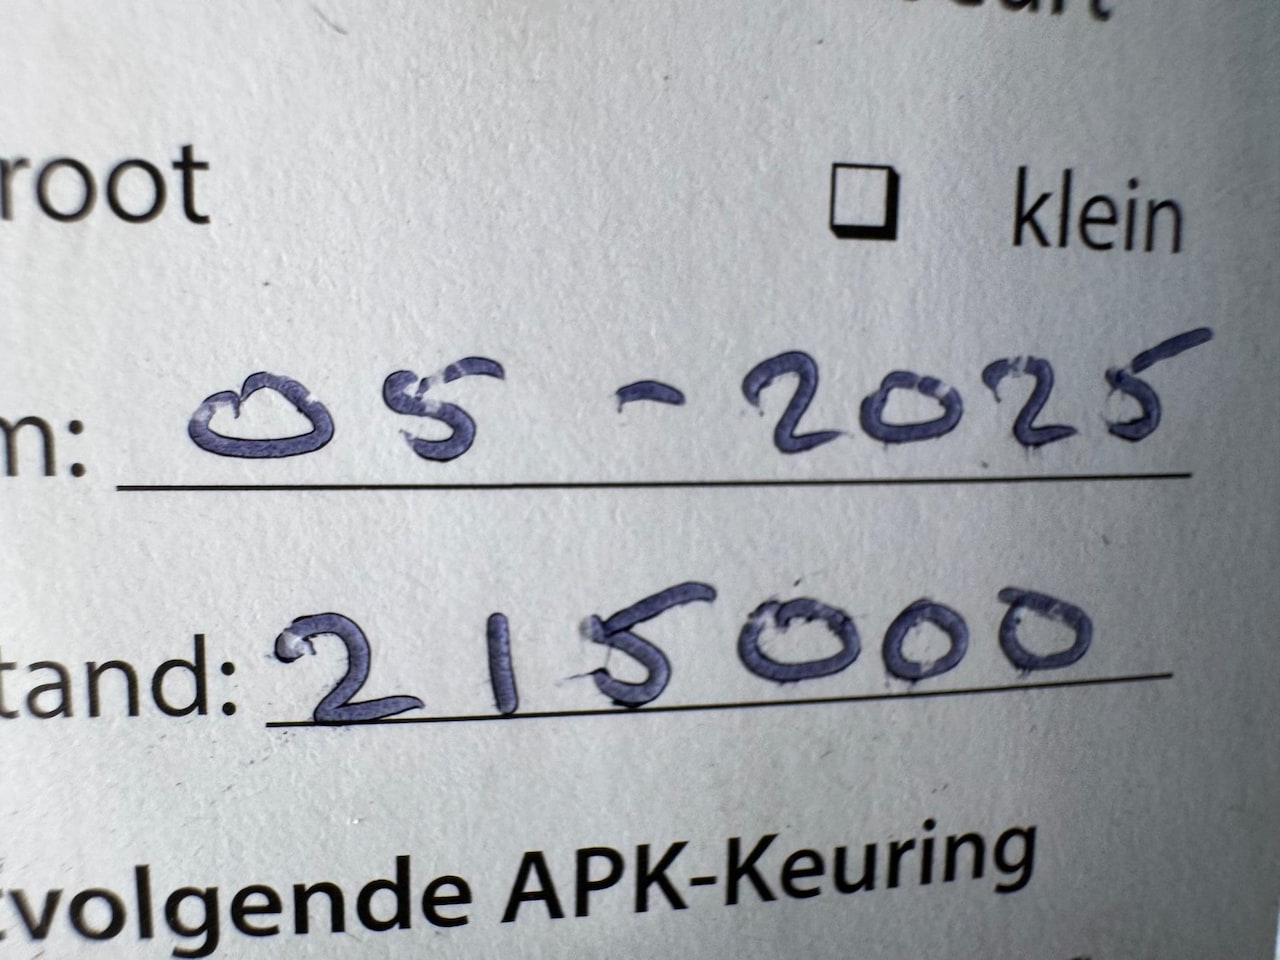 root ❑ klein
m: 05 - 2025
tand: 215000
volgende APK-Keuring